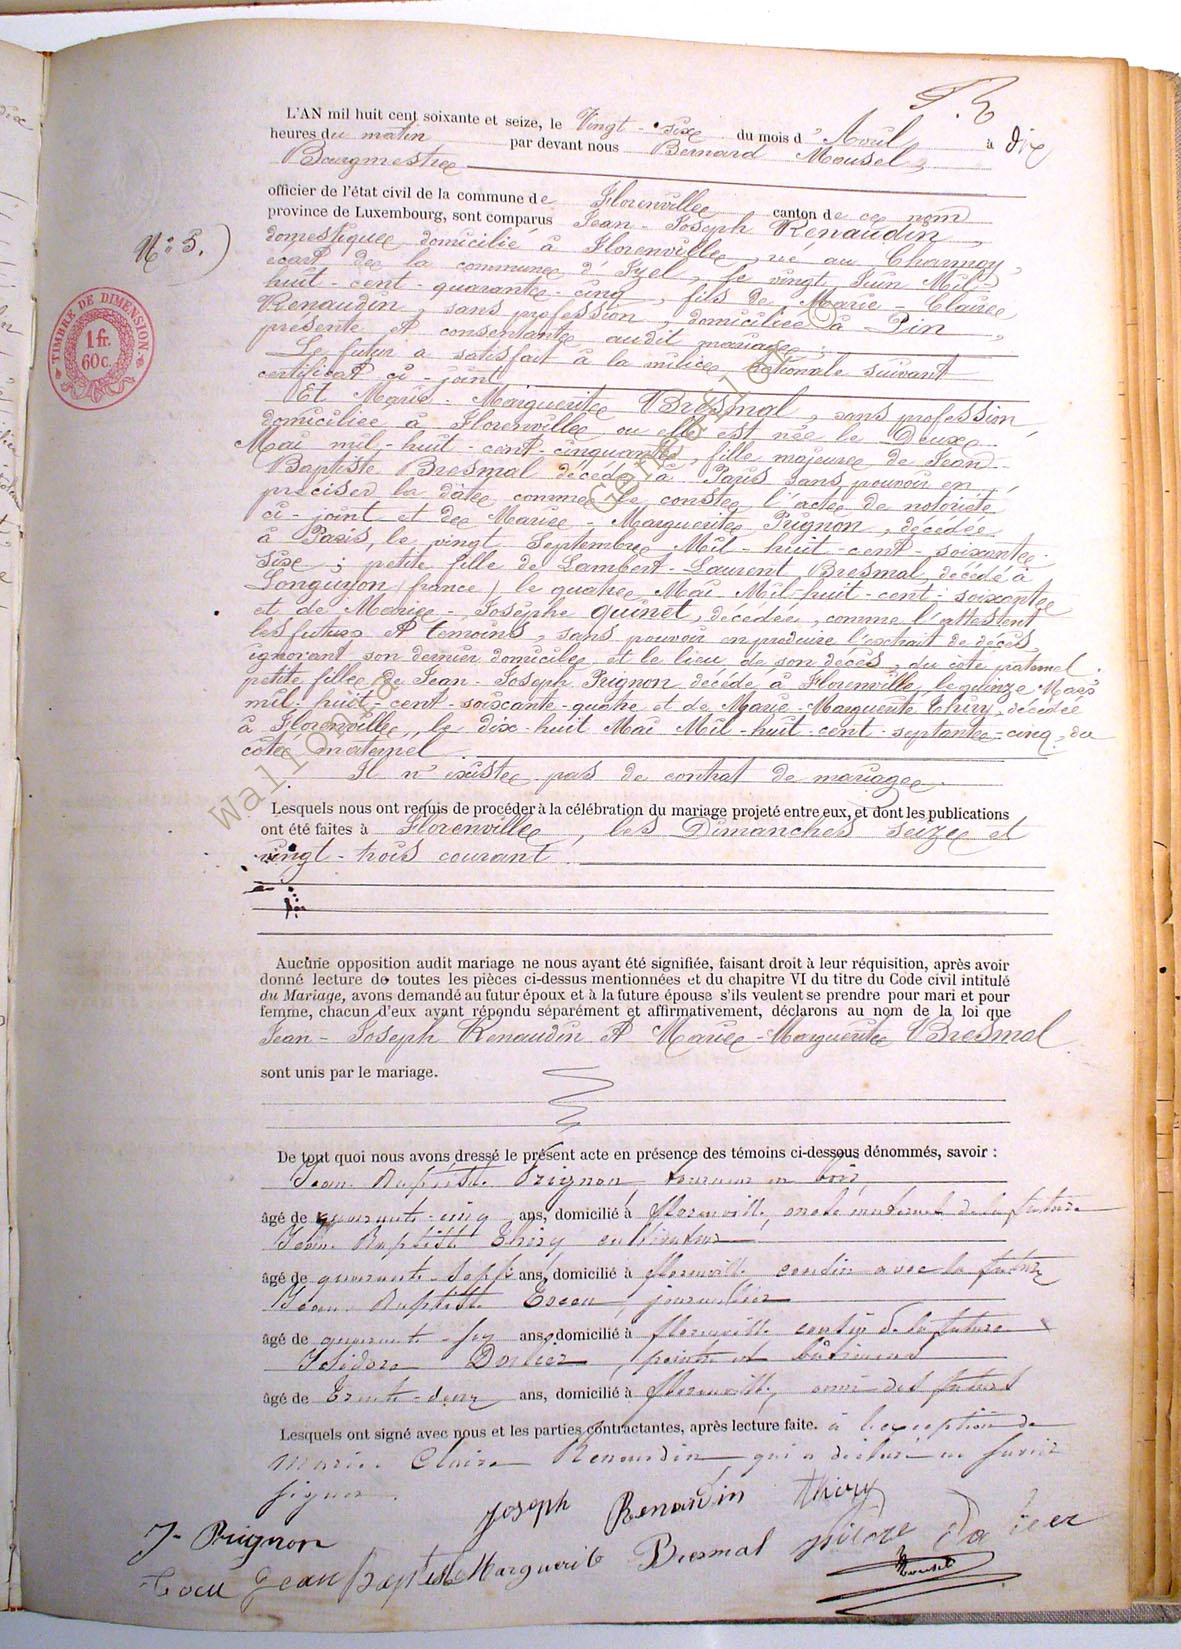 L'AN mil huit cent soixante et seize, le Vingt-six du mois d'Avril à dix
heures du matin par devant nous Bernard Mousel,
Bourgmestre
officier de l'état civil de la commune de Florenville canton de ce nom
province de Luxembourg, sont comparus Jean-Joseph Renaudin,
domestique, domicilié à Florenville, né au Charmoy,
écart de la commune d'Izel, le vingt Juin Mil-
huit-cent-quarante-cinq, fils de Marie-Claire
Renaudin, sans profession, domiciliée à Pin,
présente et consentante audit mariage;
Le futur a satisfait à la milice nationale suivant
certificat ci-joint
Et Marie-Marguerite Bresmal, sans profession,
domiciliée à Florenville où elle est née le Deux
Mai mil-huit-cent-cinquante, fille majeure de Jean-
Baptiste Bresmal décédé à Paris sans pouvoir en
préciser la date comme le conste l'acte de notoriété
ci-joint et de Marie-Marguerite Prignon, décédée
à Paris, le vingt Septembre Mil-huit-cent-soixante-
six; petite fille de Lambert-Laurent Bresmal, décédé à
Longuyon (france), le quatre Mai Mil-huit-cent-soixante
et de Marie-Josèphe Quinet, décédée, comme l'attestent
les futurs et témoins, sans pouvoir en produire l'extrait de décès,
ignorant son dernier domicile et le lieu de son décès, du côté paternel.
petite fille de Jean-Joseph Prignon décédé à Florenville, le quinze Mars
mil-huit-cent-soixante-quatre et de Marie-Marguerite Thiry, décédée
à Florenville, le dix-huit Mai Mil-huit-cent-septante-cinq, du
côté maternel
Il n'existe pas de contrat de mariage.
Lesquels nous ont requis de procéder à la célébration du mariage projeté entre eux, et dont les publications
ont été faites à Florenville, les Dimanches seize et
vingt-trois courant
Aucune opposition audit mariage ne nous ayant été signifiée, faisant droit à leur réquisition, après avoir
donné lecture de toutes les pièces ci-dessus mentionnées et du chapitre VI du titre du Code civil intitulé
du Mariage, avons demandé au futur époux et à la future épouse s'ils veulent se prendre pour mari et pour
femme, chacun d'eux ayant répondu séparément et affirmativement, déclarons au nom de la loi que
Jean-Joseph Renaudin et Marie-Marguerite Bresmal
sont unis par le mariage.
De tout quoi nous avons dressé le présent acte en présence des témoins ci-dessous dénommés, savoir :
Jean Baptiste Prignon, tourneur en bois,
âgé de quarante-cinq ans, domicilié à florenville, oncle maternel de la future
Jean Baptiste Thiry cultivateur
âgé de quarante-sept ans, domicilié à florenville cousin avec la future
Jean Baptiste journalier
âgé de quarante-six ans, domicilié à florenville cousin de la future
Isidore peintre en bâtimens
âgé de trente-deux ans, domicilié à florenville, ami des futurs
Lesquels ont signé avec nous et les parties contractantes, après lecture faite. à l'exception de
Marie Claire Renaudin qui a déclaré ne savoir
signer.
Joseph Renaudin Thiry
J- Prignon
Jean baptiste Marguerite Bresmal
Mousel
N° 5.
TIMBRE DE DIMENSION
1 fr.
60 c.
wallonia Genealogy